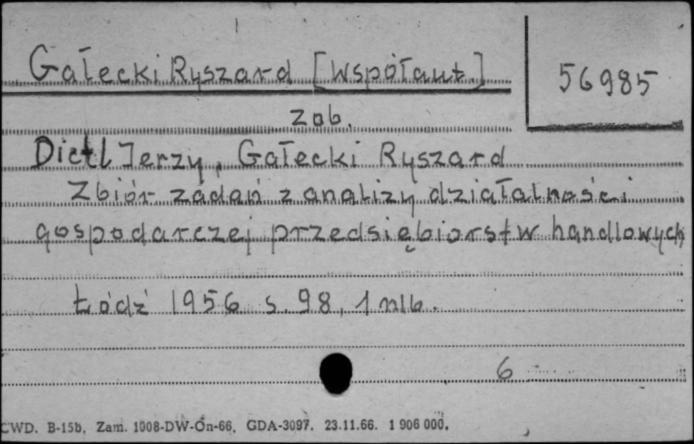 Gałecki Ryszard [Współaut.]
56985
zob.
Dietl Jerzy, Gałecki Ryszard
Zbiór zadań z analizy działalności
gospodarczej przedsiębiorstw handlowych
Łódź 1956 s. 98, 1 nlb.
6
CWD. B-15b, Zam. 1008-DW-On-66, GDA-3097. 23.11.66. 1 906 000.